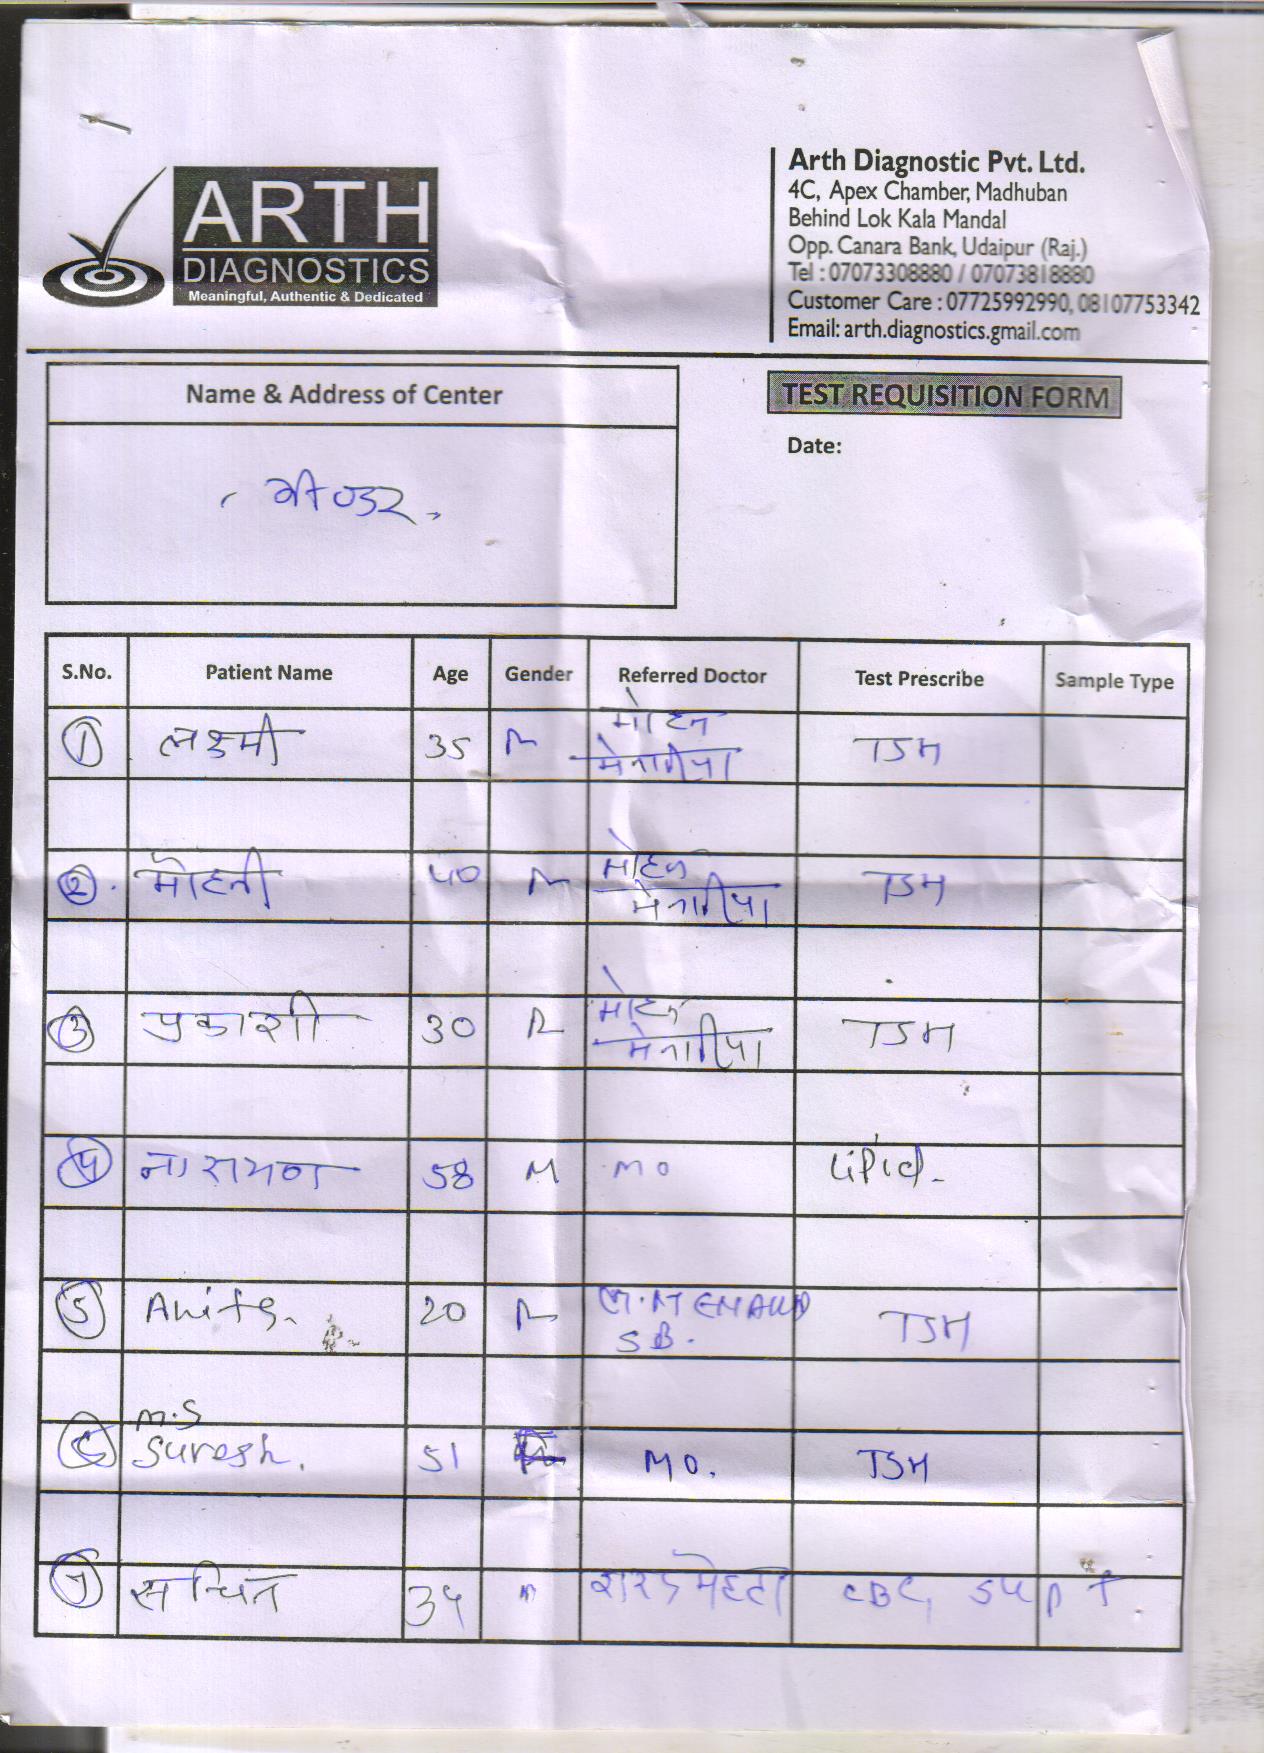 ARTH
DIAGNOSTICS
Meaningful, Authentic & Dedicated
Arth Diagnostic Pvt. Ltd.
4C, Apex Chamber, Madhuban
Behind Lok Kala Mandal
Opp. Canara Bank, Udaipur (Raj.)
Tel : 07073308880 / 07073818880
Customer Care : 07725992990, 08107753342
Email: arth.diagnostics.gmail.com
Name & Address of Center
TEST REQUISITION FORM
Date:
S.No. Patient Name Age Gender Referred Doctor Test Prescribe Sample Type
1 लक्ष्मी 35 मोहन मेनारीया TSH
2 मोहनी 40 मोहन मेनारीया TSH
3 प्रकाशी 30 मोहन मेनारीया TSH
4 नारायण 58 M MO Lipid
5 Anita 20 SB. TSH
M.S
6 Suresh. 51 MO. TSH
7 34 मेहता CBC,